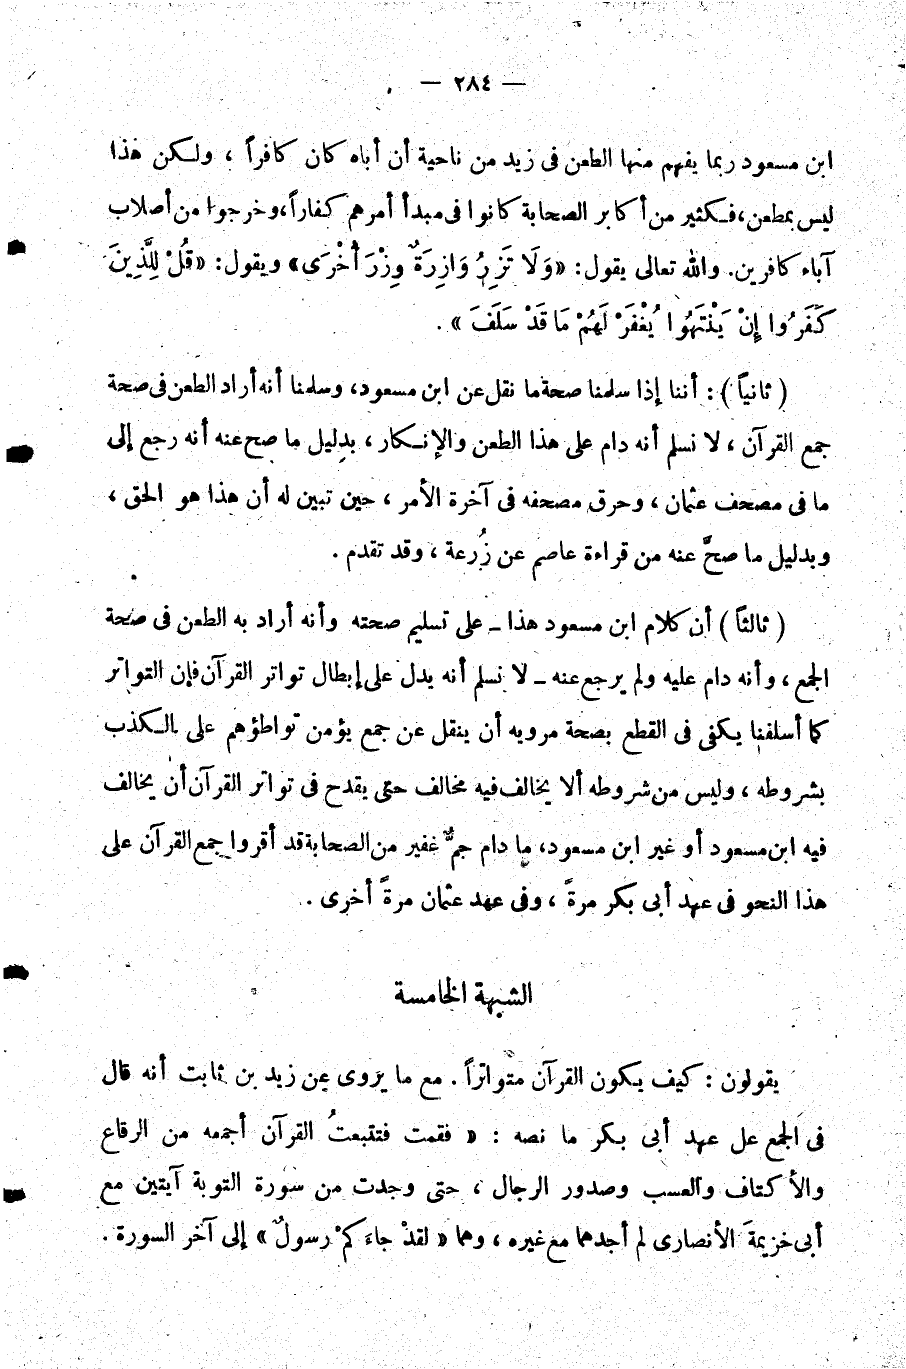 — ٢٨٤ —
ابن مسعود ربما يفهم منها الطعن فى زيد من ناحية أن أباه كان كافراً ، ولكن هذا
ليس بمطعن، فكثير من أكابر الصحابة كانوا فى مبدأ أمرهم كفاراً، وخرجوا من أصلاب
آباء كافرين. والله تعالى يقول: «وَلَا تَزِرُ وَازِرَةٌ وِزْرَ أُخْرَى» ويقول: «قُلْ لِلَّذِينَ
كَفَرُوا إِنْ يَنْتَهُوا يُغْفَرْ لَهُمْ مَا قَدْ سَلَفَ » .
( ثانياً ) : أننا إذا سلمنا صحة ما نقل عن ابن مسعود، وسلمنا أنه أراد الطعن فى صحة
جمع القرآن ، لا نسلم أنه دام على هذا الطعن والإنكار ، بدليل ما صح عنه أنه رجع إلى
ما فى مصحف عثمان ، وحرق مصحفه فى آخرة الأمر ، حين تبين له أن هذا هو الحق ،
وبدليل ما صحَّ عنه من قراءة عاصم عن زُرعة ، وقد تقدم .
( ثالثاً ) أن كلام ابن مسعود هذا ــ على تسليم صحته وأنه أراد به الطعن فى صحة
الجمع ، وأنه دام عليه ولم يرجع عنه ــ لا نسلم أنه يدل على إبطال تواتر القرآن فإن التواتر
كما أسلفنا يكفى فى القطع بصحة مرويه أن ينقل عن جمع يؤمن تواطؤهم على الكذب
بشروطه ، وليس من شروطه ألا يخالف فيه مخالف حتى يقدح فى تواتر القرآن أن يخالف
فيه ابن مسعود أو غير ابن مسعود، ما دام جمٌّ غفير من الصحابة قد أقروا جمع القرآن على
هذا النحو فى عهد أبى بكر مرةً ، وفى عهد عثمان مرةً أخرى .
الشبهة الخامسة
يقولون : كيف يكون القرآن متواتراً . مع ما يروى عن زيد بن ثابت أنه قال
فى الجمع عل عهد أبى بكر ما نصه : « فقمت فتتبعتُ القرآن أجمعه من الرقاع
والأكتاف والعسب وصدور الرجال ، حتى وجدت من سورة التوبة آيتين مع
أبى خزيمةَ الأنصارى لم أجدهما مع غيره ، وهما « لقدْ جاءَكمْ رسولٌ » إلى آخر السورة .